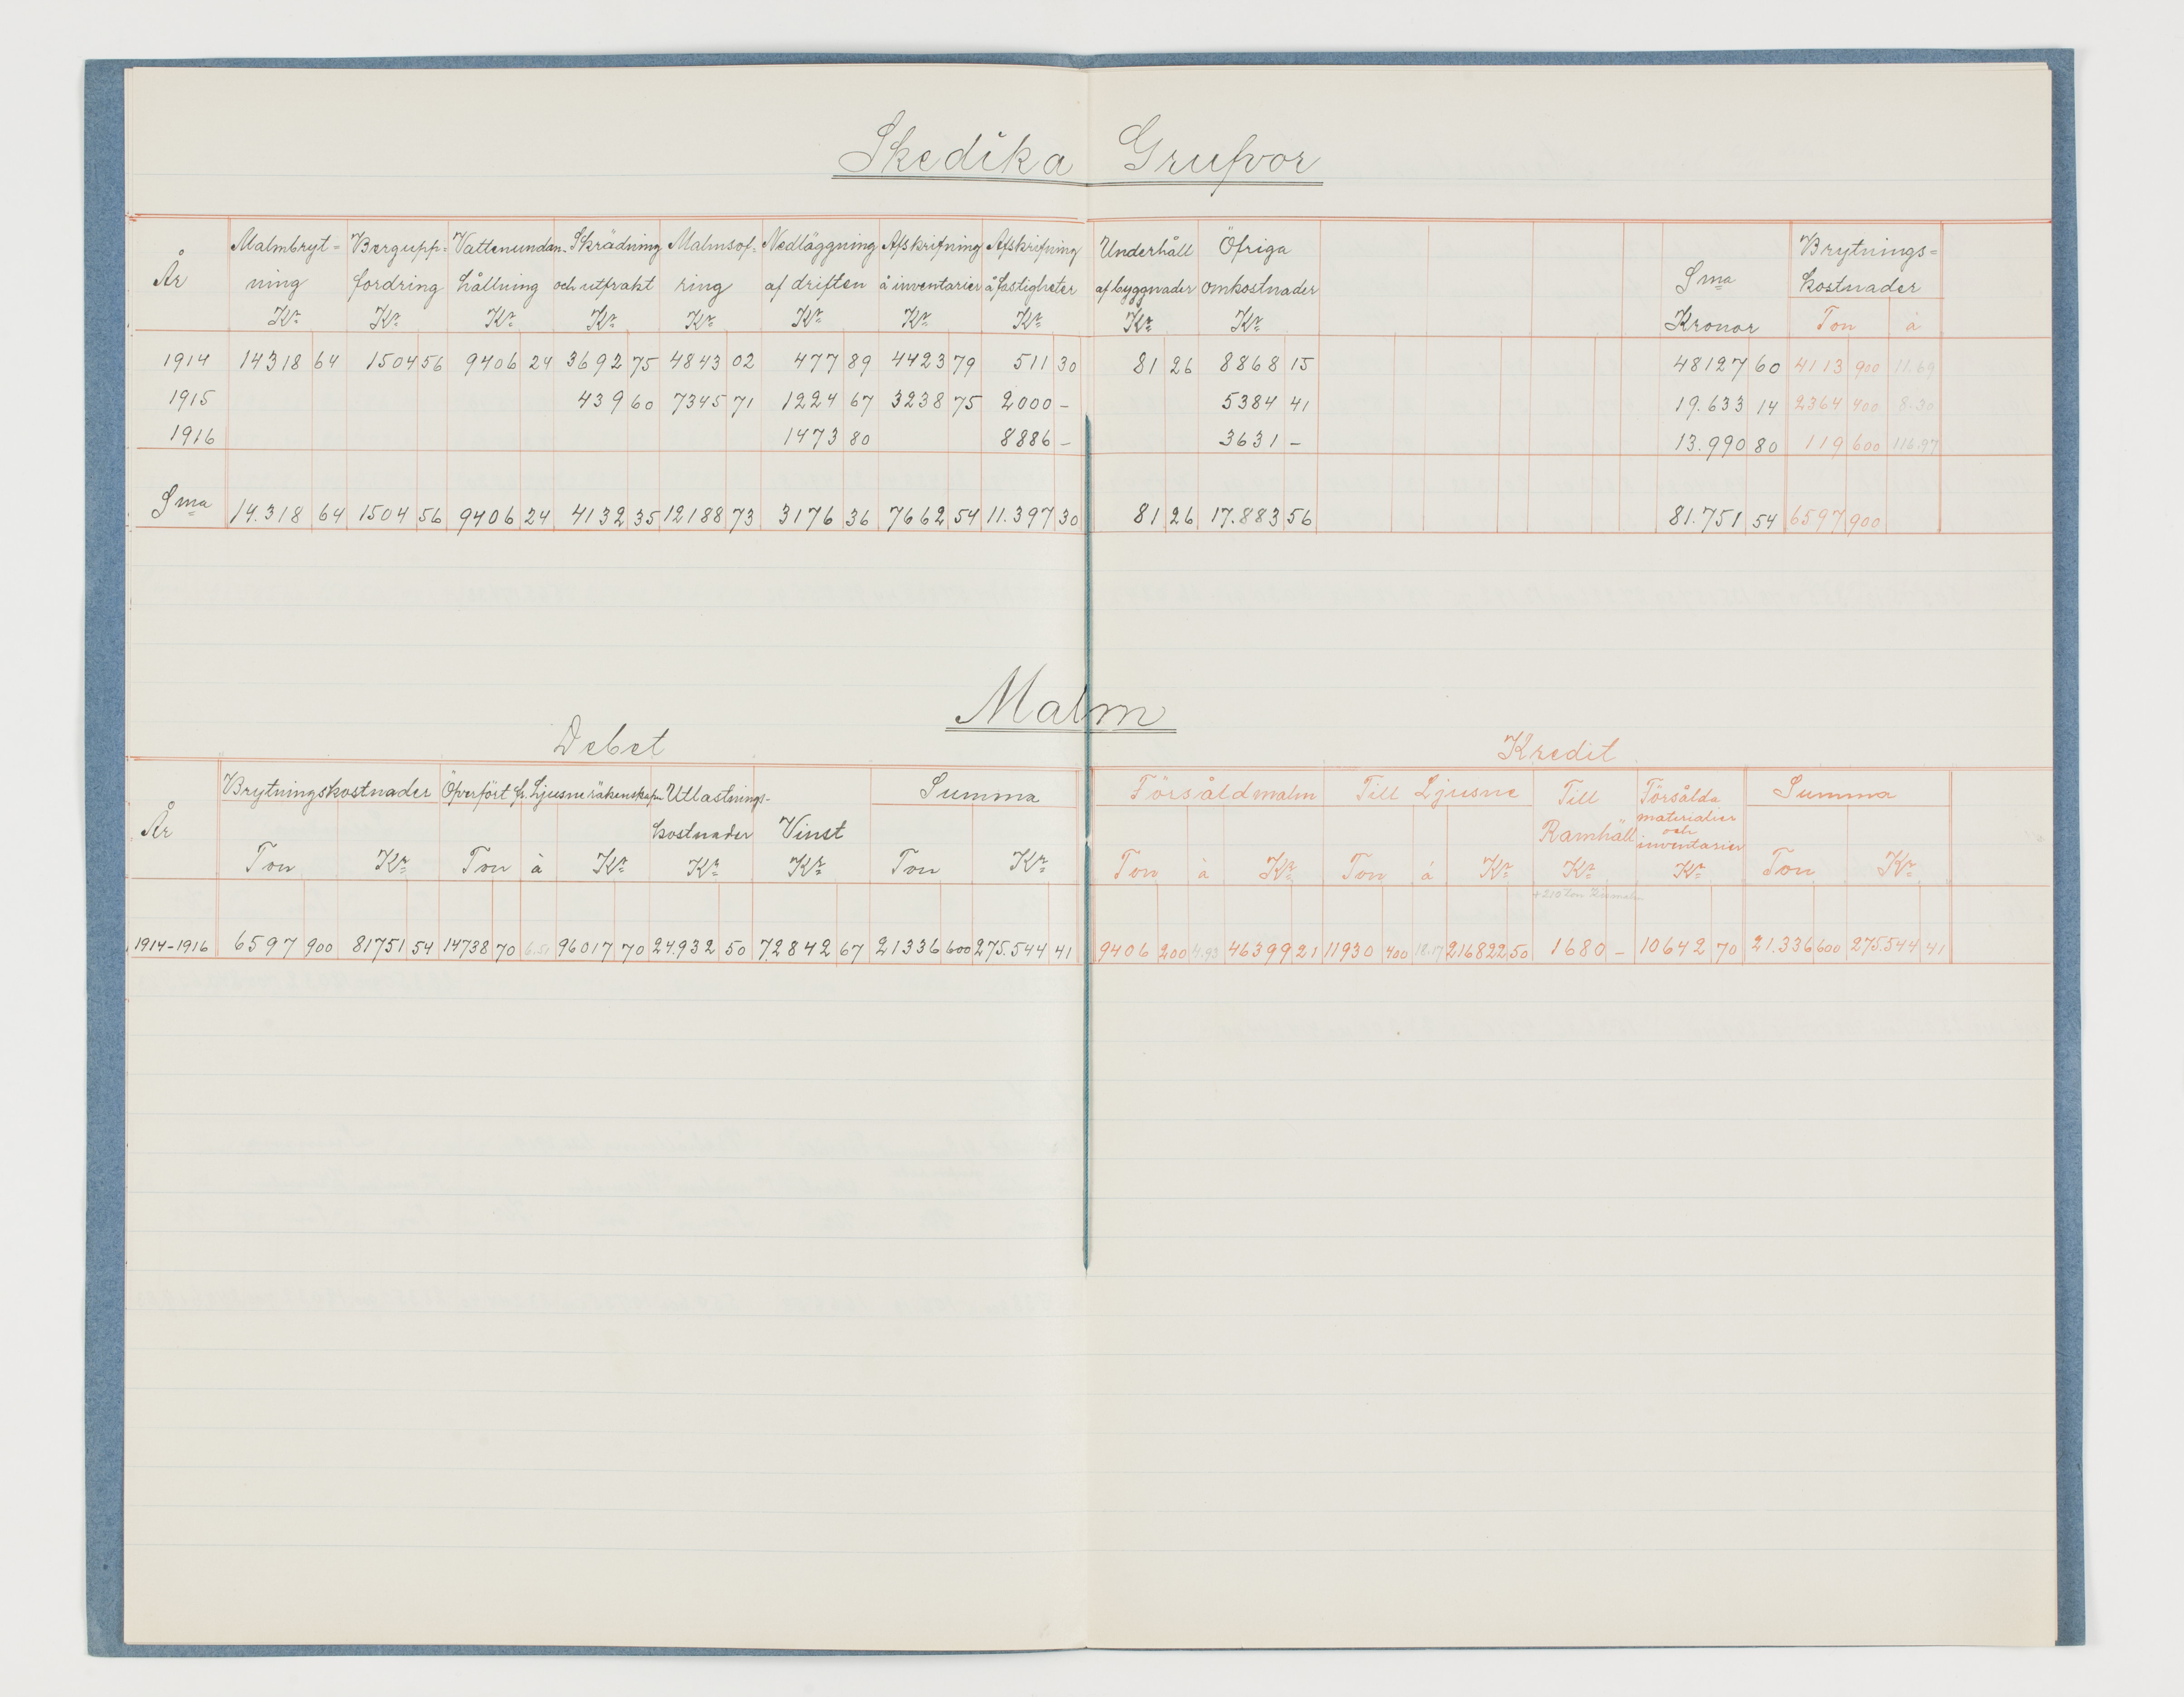 Skedika Grufvor
År Malmbryt= Bergupp= Vattenundan- Skrädning Malmsof- Nedläggning Afskrifning Afskrifning Underhåll Öfriga Sma Brytnings=
ning fordring hållning och utfrakt ring af driften å inventarier å fastigheter af byggnader omkostnader kostnader
Kr Kr Kr Kr Kr Kr Kr Kr Kr Kr Kronor Ton à
1914 14318 64 1504 56 9406 24 3692 75 4843 02 477 89 4423 79 511 30 81 26 8868 15 48127 60 4113 900 11.69
1915 439 60 7345 71 1224 67 3238 75 2000 - 5384 41 19.633 14 2364 400 8.30
1916 1473 80 8886 - 3631 - 13.990 80 119 600 116.97
Sma 14.318 64 1504 56 9406 24 4132 35 12188 73 3176 36 7662 54 11.397 30 81 26 17.883 56 81.751 54 6597 900
Malm
Debet Kredit
År Brytningskostnader Öfverfört fr. Ljusne räkenskaper Utlastnings- Summa Försåld malm Till Ljusne Till Försålda Summa
kostnader Vinst Ramhäll materialier
och
inventarier
Ton Kr Ton à Kr Kr Kr Ton Kr Ton à Kr Ton à Kr Kr Kr Ton Kr
+210 Ton
1914-1916 6597 900 81751 54 14738 70 6.51 96017 70 24.932 50 72842 67 21336 600 275.544 41 9406 200 4.93 46399 21 11930 400 18.17 216822 50 1680 - 10642 70 21.336 600 275.544 41